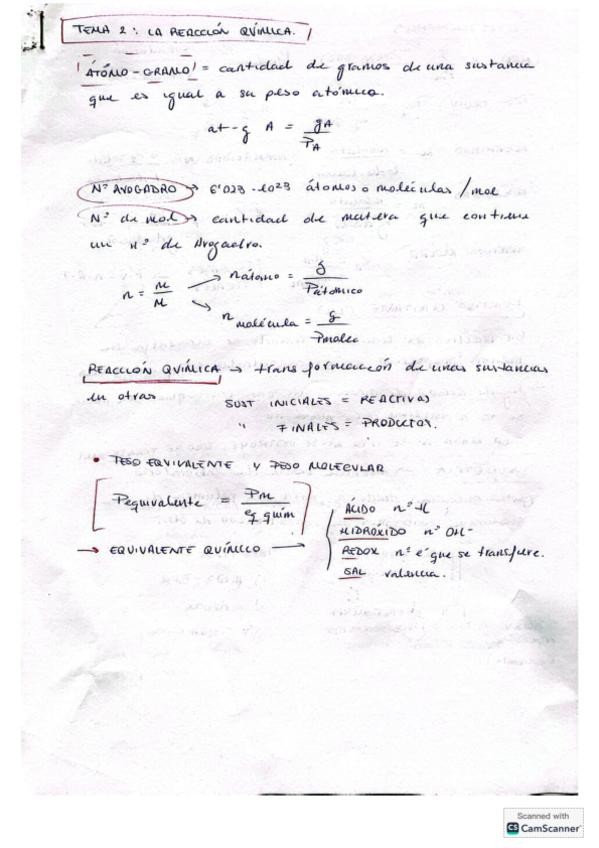 TEMA 2: LA REACCIÓN QUÍMICA.
ÁTOMO-GRAMO = cantidad de gramos de una sustancia
que es igual a su peso atómico.
at-g A = gA / PA
Nº AVOGADRO → 6'023 · 10²³ átomos o moléculas /mol
Nº de mol → cantidad de materia que contiene
un nº de Avogadro.
n = m / M → n átomo = g / Patómico
→ n molécula = g / Pmolec
REACCIÓN QUÍMICA → transformación de unas sustancias
en otras
SUST INICIALES = REACTIVOS
" FINALES = PRODUCTOS.
• PESO EQUIVALENTE Y PESO MOLECULAR
Pequivalente = Pm / eq quím
→ EQUIVALENTE QUÍMICO →
ÁCIDO nº H
HIDRÓXIDO nº OH-
REDOX nº é que se transfiere.
SAL valencia.
Scanned with
CS CamScanner